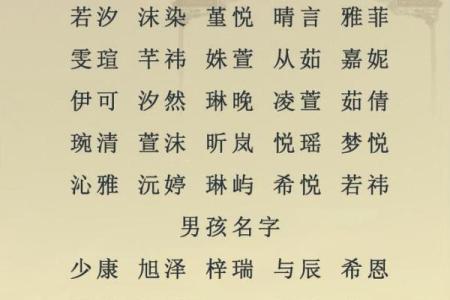 若汐 沫染 堇悦 晴言 雅菲
雯瑄 芊祎 姝萱 从茹 嘉妮
伊可 汐然 琳晚 凌萱 茹倩
琬清 萱沫 昕岚 悦瑶 梦悦
沁雅 沅婷 琳屿 希悦 若祎
男孩名字
少康 旭泽 梓瑞 与辰 希恩